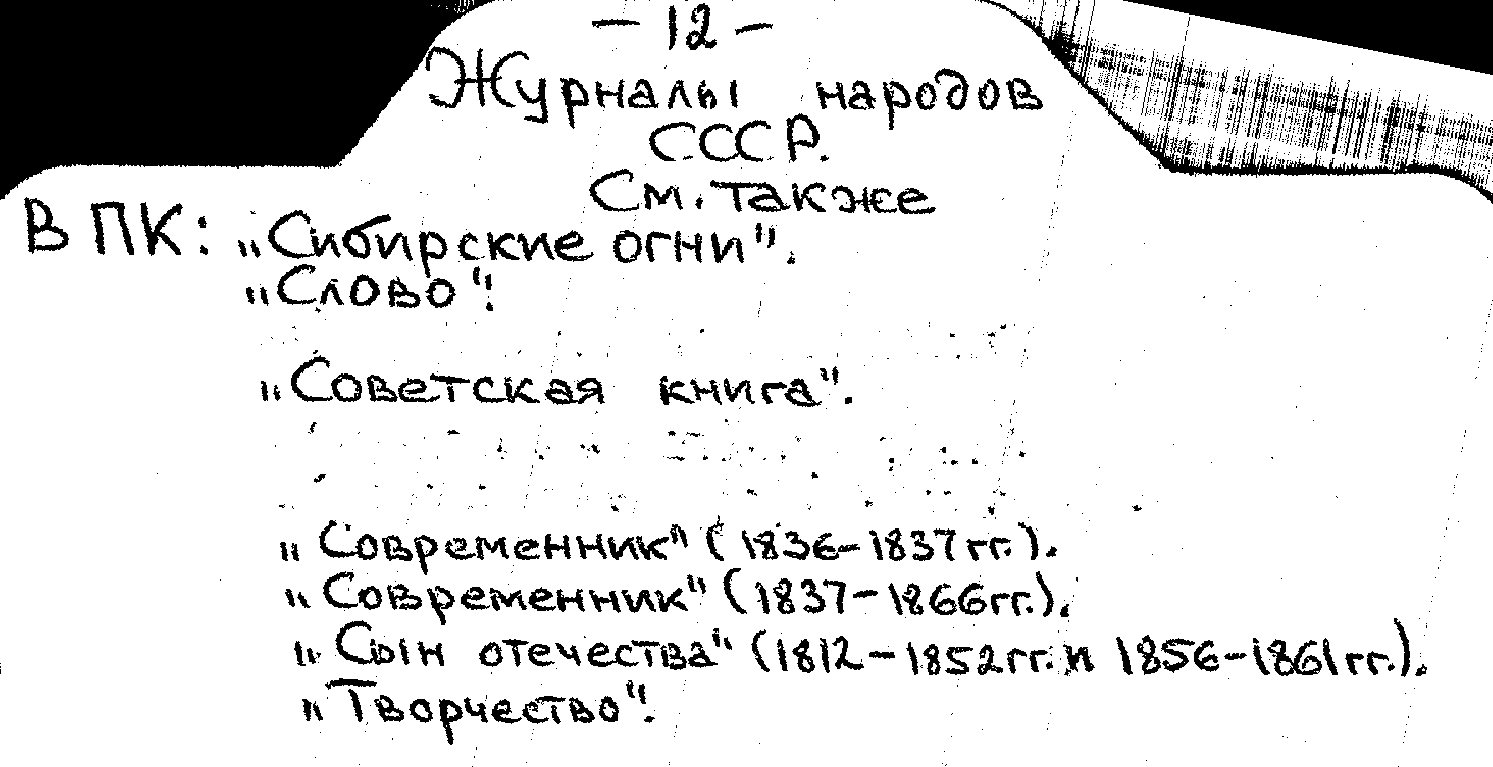 — 12 —
Журналы народов
СССР.
См. также
В ПК: „Сибирские огни".
„Слово".
„Советская книга".
„Современник" (1836-1837 гг.).
„Современник" (1837-1866гг.).
„Сын отечества" (1812-1852гг. и 1856-1861гг.).
„Творчество".